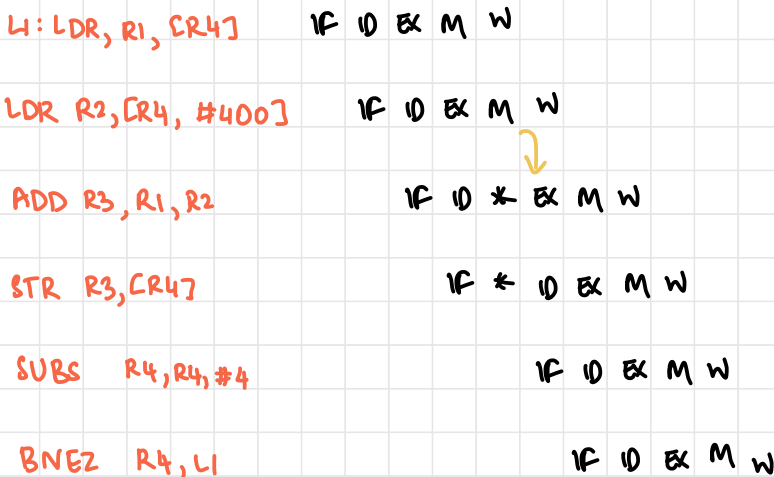 L1: LDR, R1, [R4] IF ID EX M W
LDR R2, [R4, #400] IF ID EX M W
ADD R3, R1, R2 IF ID * EX M W
STR R3, [R4] IF * ID EX M W
SUBS R4, R4, #4 IF ID EX M W
BNEZ R4, L1 IF ID EX M W